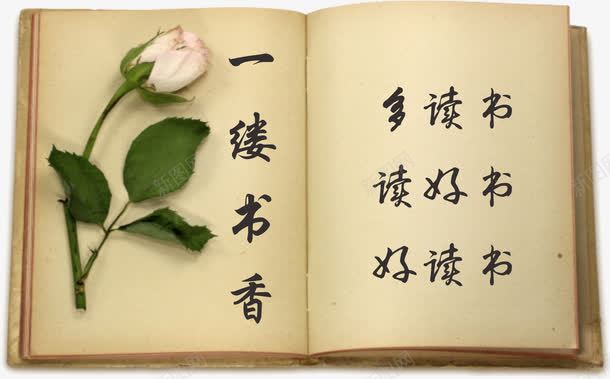 一缕书香
多读书
读好书
好读书